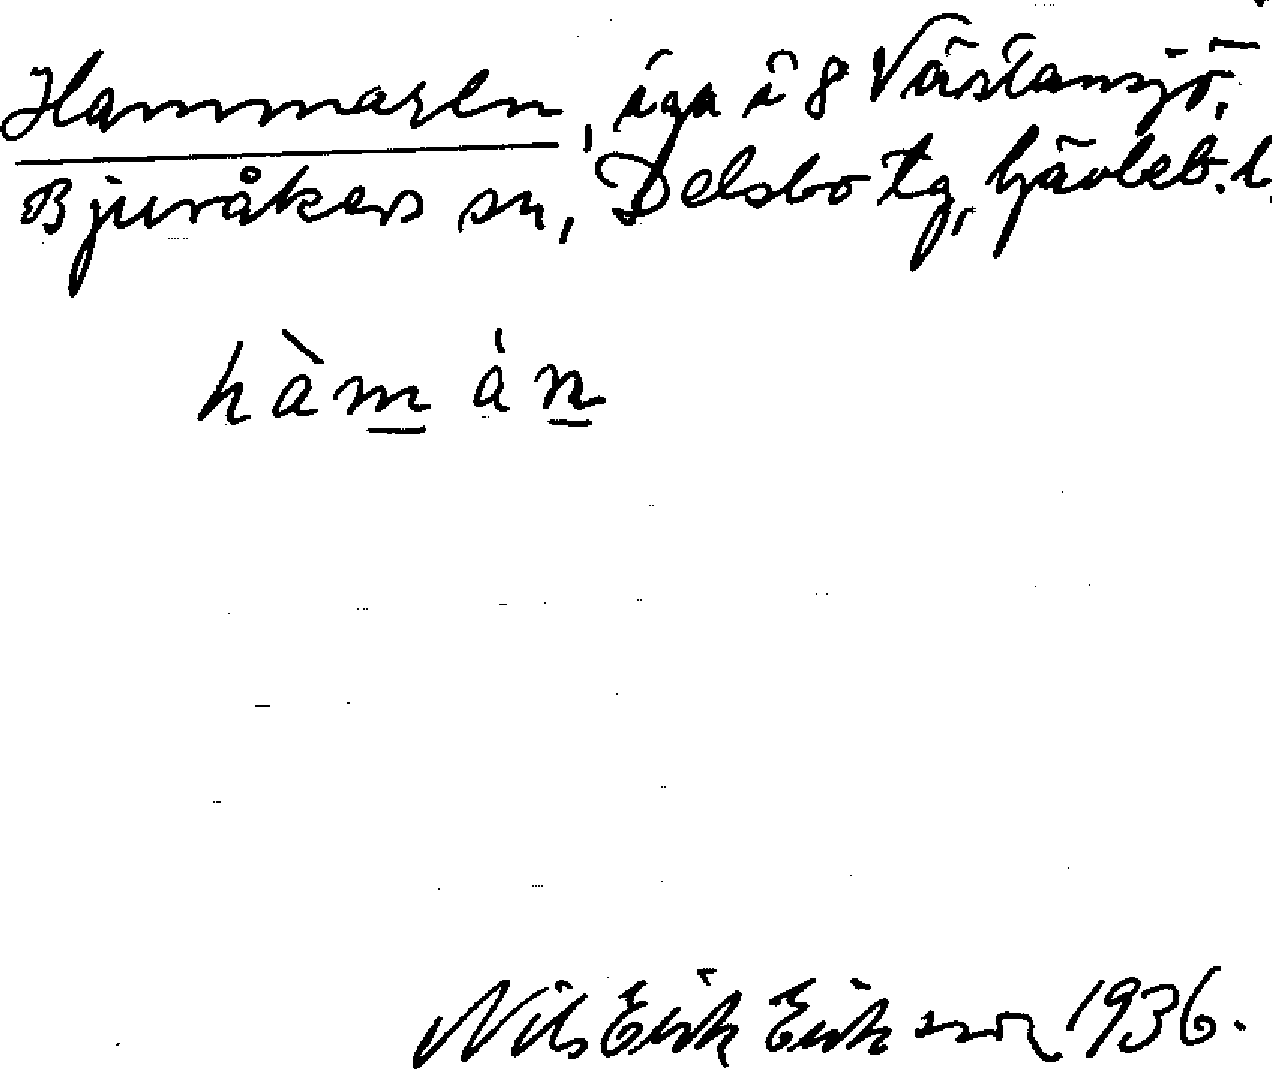 Hammaren, äga i 8 Västansjö,
Bjuråkers sn, Delsbo tg, Gävleb. l.
hàm án
Nils Erik Eriksson 1936.